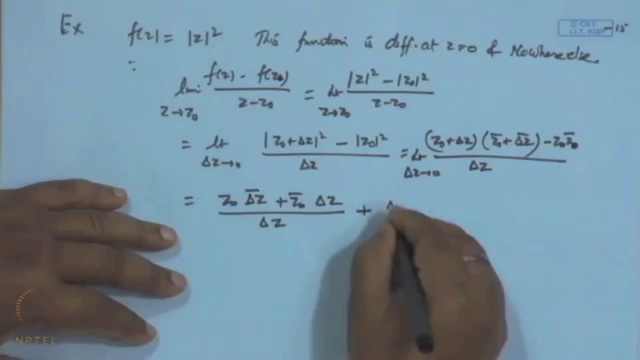 Ex f(z) = |z|² This function is diff. at z=0 & Nowhere else
∵ lim_{z→z₀} (f(z) - f(z₀))/(z - z₀) = lt_{z→z₀} (|z|² - |z₀|²)/(z - z₀)
= lt_{Δz→0} (|z₀+Δz|² - |z₀|²)/Δz = lt_{Δz→0} ((z₀+Δz)(z̄₀+Δ̄z̄) - z₀z̄₀)/Δz
= (z₀ Δ̄z̄ + z̄₀ Δz)/Δz + Δ
NPTEL